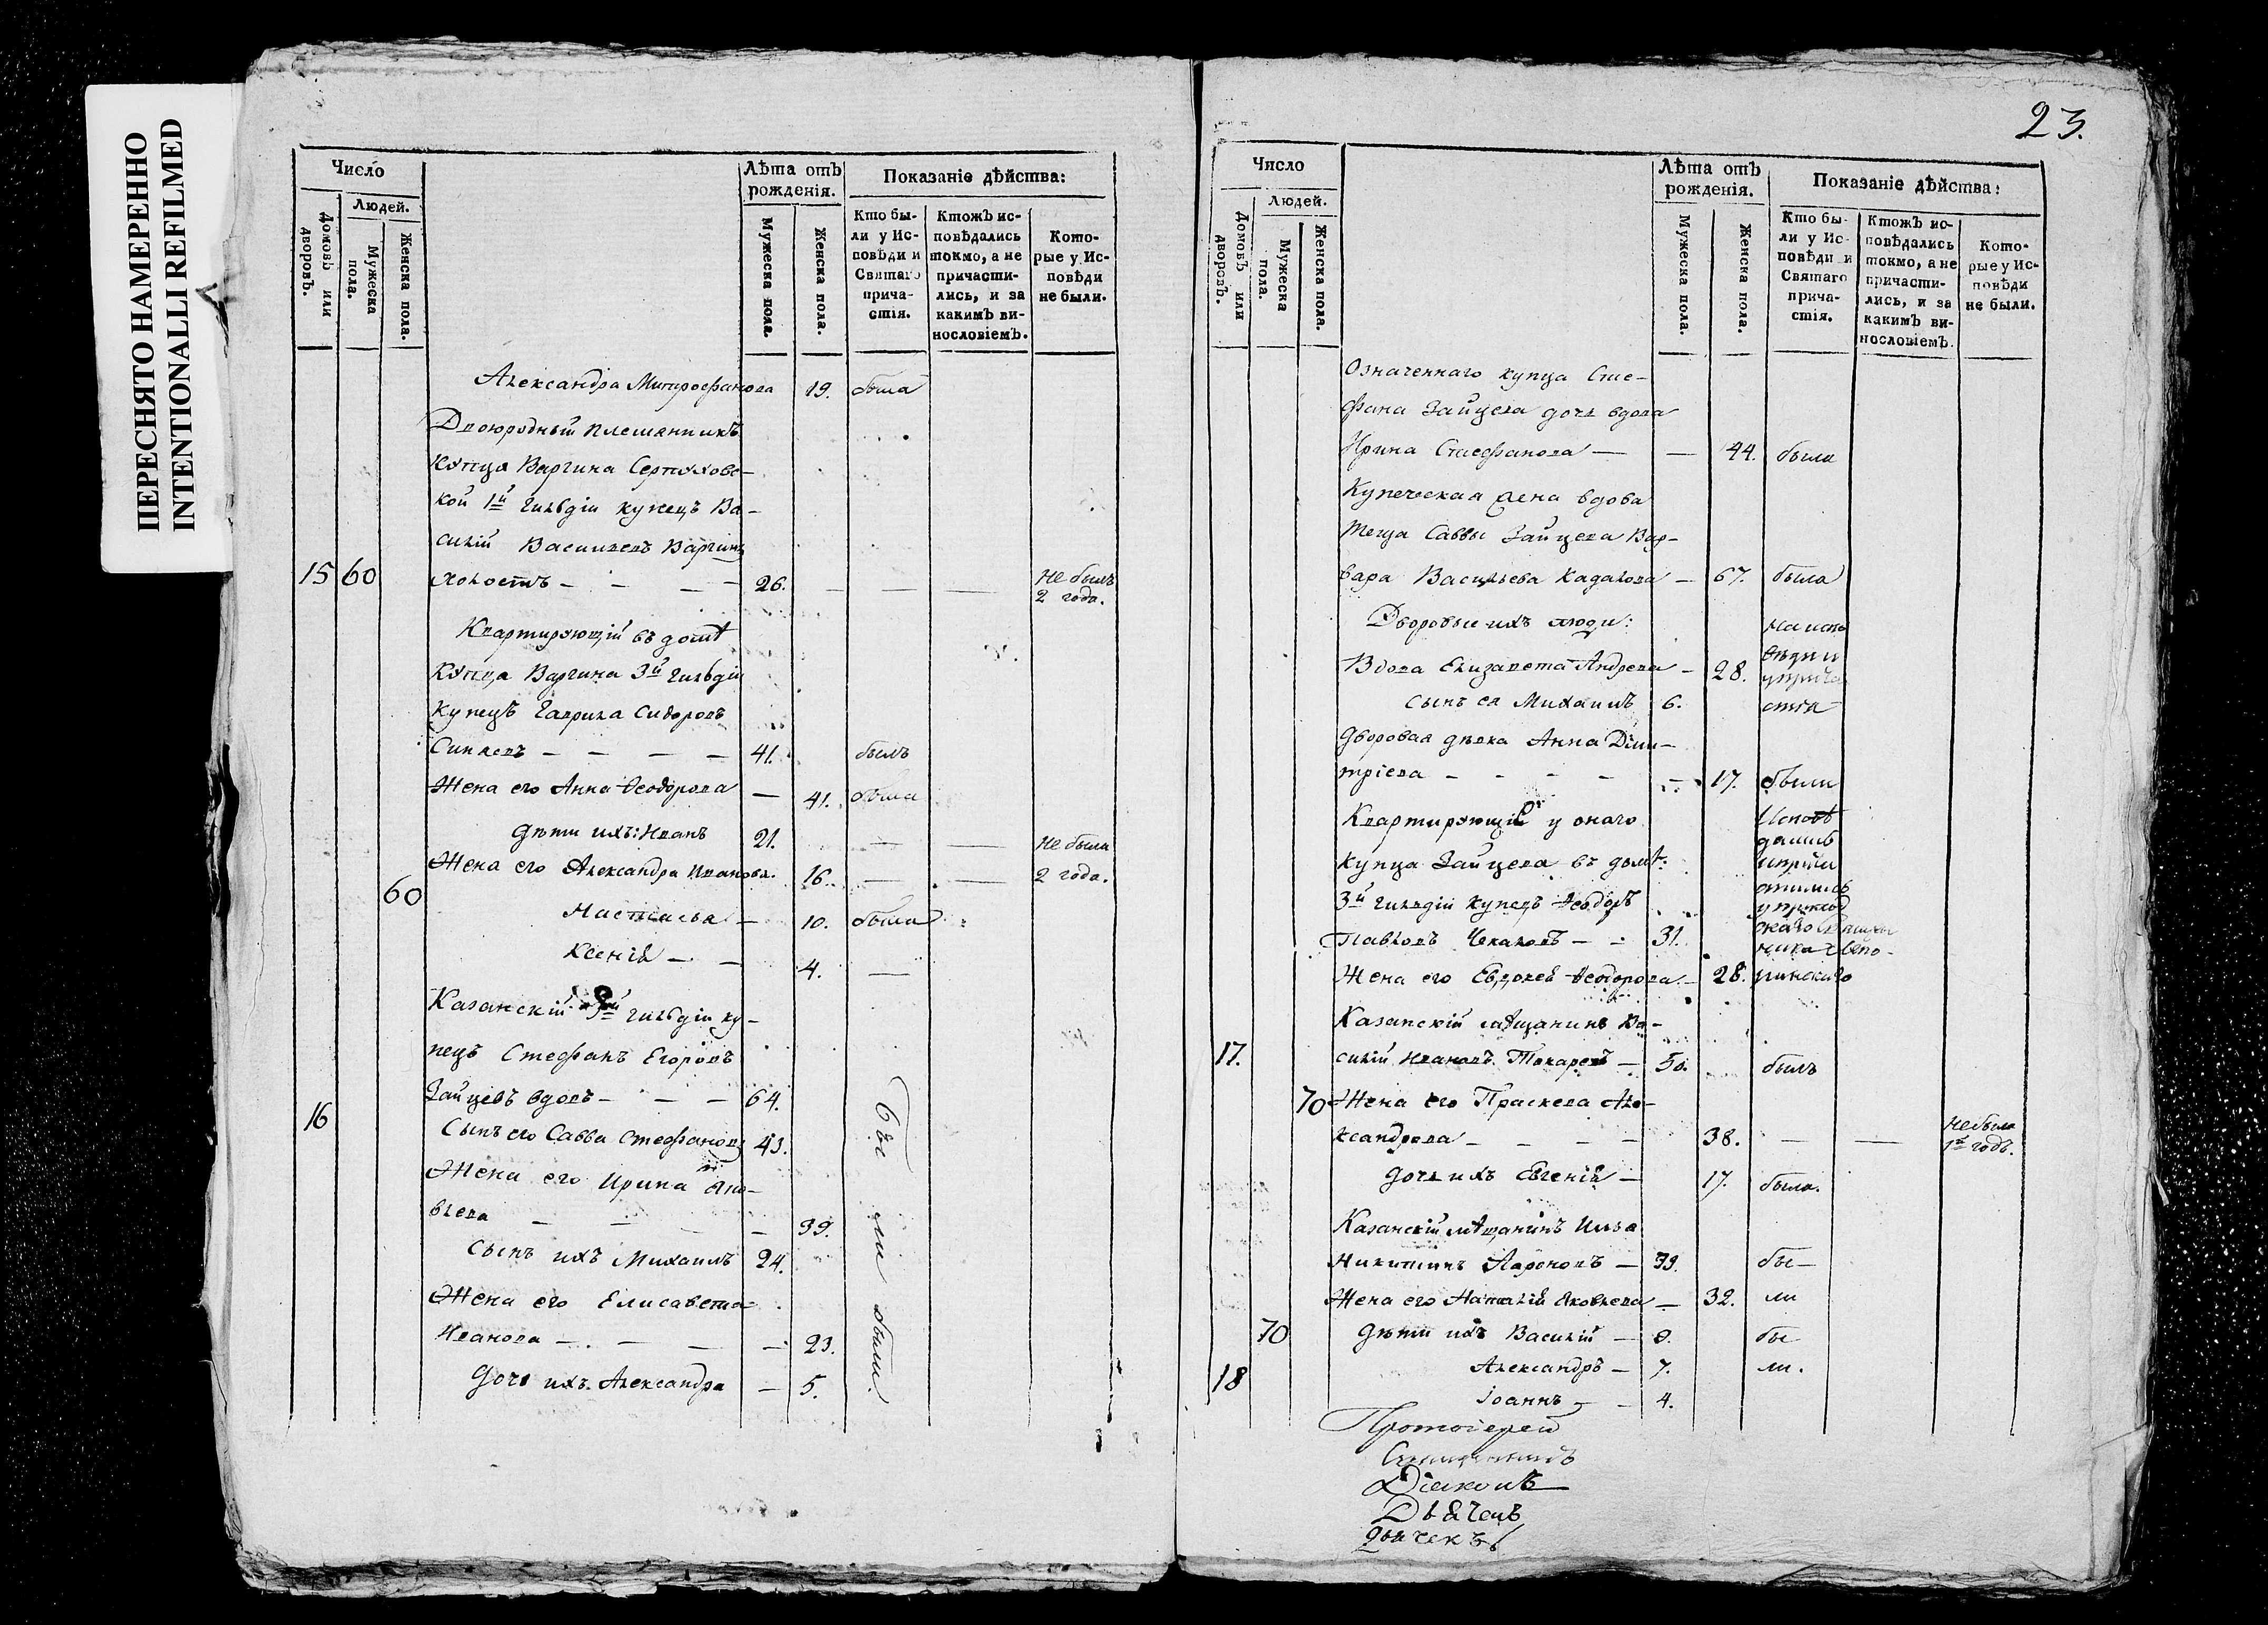 ПЕРЕСНЯТО НАМЕРЕННО
INTENTIONALLI REFILMED
Число
Людей.
Домовъ или дворовъ.
Мужеска пола.
Женска пола.
Лѣта отъ рожденія.
Мужеска пола.
Женска пола.
Показаніе дѣйства:
Кто бы-
ли у Ис-
повѣди и
Святаго
прича-
стія.
Ктожъ ис-
повѣдались
токмо, а не
причасти-
лись, и за
какимъ ви-
нословіемъ.
Кото-
рые у Ис-
повѣди
не были.
Александра Митрофанова 19. была
Двоюродный племянникъ
купца Варгина Серпуховс-
кой 1й гильдіи купецъ Ва-
силій Васильевъ Варгинъ
15 60 холостъ - - - 26. - - - Не былъ
2 года.
Квартирующій въ домѣ
купца Варгина 3й гильдіи
купецъ Гаврила Сидоровъ
- - - - 41. былъ
Жена его Анна Ѳеодорова - 41. была
дѣти ихъ: Иванъ 21. - - Не были
Жена его Александра Иванова. 16. - - 2 года.
60
Настасья - 10. была
Ксенія - - 4. -
Казанскій 3й гильдіи ку-
пецъ Стефанъ Егоровъ
Зайцевъ вдовъ - - - 64.
16
Сынъ его Савва Стефановъ 43.
Жена его Ирина
влева - - - - 39.
Сынъ ихъ Михаилъ 24.
Жена его Елисавета
Иванова - - - - 23.
дочь ихъ Александра - 5.
были
23.
Число
Людей.
Домовъ или дворовъ.
Мужеска пола.
Женска пола.
Лѣта отъ рожденія.
Мужеска пола.
Женска пола.
Показаніе дѣйства:
Кто бы-
ли у Ис-
повѣди и
Святаго
прича-
стія.
Ктожъ ис-
повѣдались
токмо, а не
причасти-
лись, и за
какимъ ви-
нословіемъ.
Кото-
рые у Ис-
повѣди
не были.
Означеннаго купца Сте-
фана Зайцева дочь вдова
Ирина Стефанова - - 44. была
Купеческая жена вдова
теща Саввы Зайцева Вар-
вара Васильева Кадалова - 67. была
Дворовые ихъ люди: на испо
Вдова Елизавета Андреева - 28. вѣди и
у прича
сынъ ея Михаилъ 6. стія
дворовая дѣвка Анна Дими-
тріева - - - - - 17. были
Квартирующіе у онаго
купца Зайцева въ домѣ:
3й гильдіи купецъ Ѳеодоръ
Павловъ Чекаловъ - - 31.
Жена его Евдокея Ѳеодорова - 28.
Казанскій мѣщанинъ Ва-
17. силій Ивановъ Токаревъ - 50. былъ
70 Жена его Праскева Але-
ксандрова - - - - 38. - - Не была
1й годъ.
дочь ихъ Евгенія - 17. была.
Казанскій мѣщанинъ Илья
Никитинъ Ларіоновъ - 39. бы-
Жена его Наталія Яковлева - 32. ли
70 дѣти ихъ Василій - 9. бы
Александръ - 7. ли.
18
Іоаннъ - - 4.
Протоіерей
Священникъ
Діаконъ
Дьячекъ
Дьячекъ